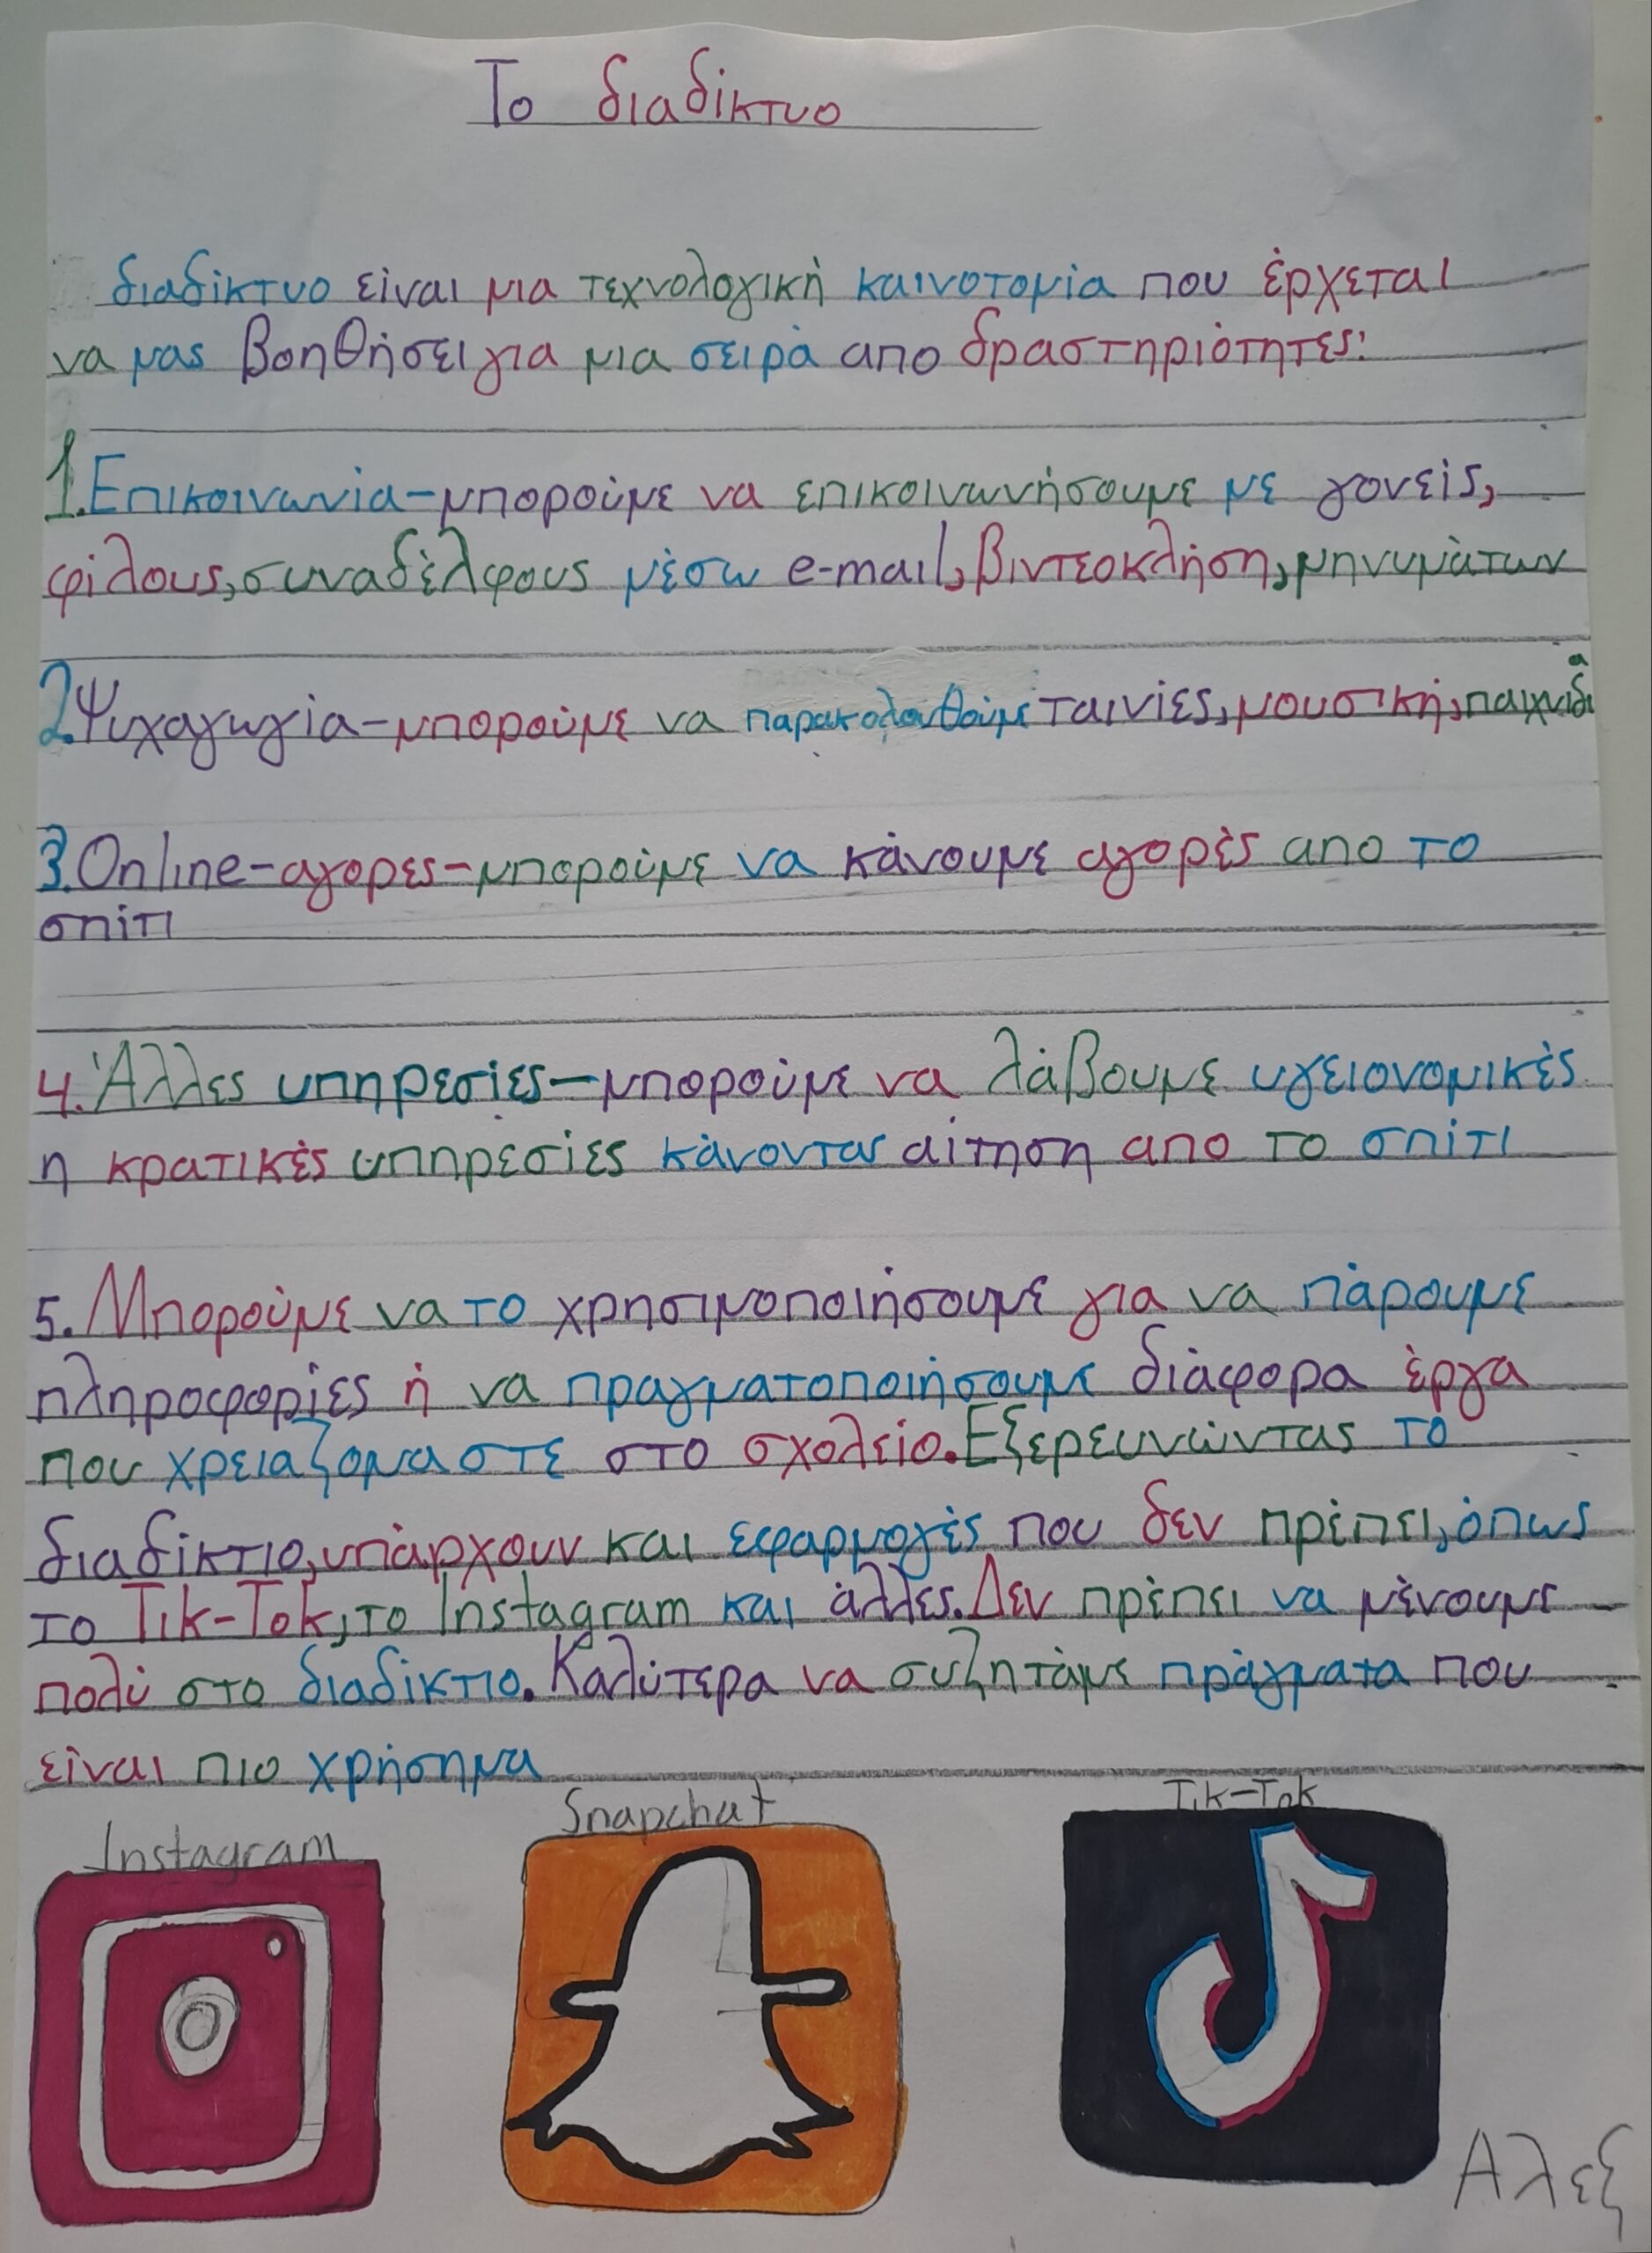 Το διαδίκτυο
διαδίκτυο είναι μια τεχνολογική καινοτομία που έρχεται
να μας βοηθήσει για μια σειρά απο δραστηριότητες:
1.Επικοινωνία-μπορούμε να επικοινωνήσουμε με γονείς,
φίλους,συναδέλφους μέσω e-mail,βιντεοκλήση,μηνυμάτων
2.Ψυχαγωγία-μπορούμε να παρακολουθούμε ταινίες,μουσική,παιχνίδια
3.Online-αγορες-μπορούμε να κάνουμε αγορές απο το
σπίτι
4.Άλλες υπηρεσίες-μπορούμε να λάβουμε υγειονομικές
η κρατικές υπηρεσίες κάνοντας αίτηση απο το σπίτι
5.Μπορούμε να το χρησιμοποιήσουμε για να πάρουμε
πληροφορίες ή να πραγματοποιήσουμε διάφορα έργα
που χρειαζομαστε στο σχολείο.Εξερευνώντας το
διαδίκτιο,υπάρχουν και εφαρμογές που δεν πρέπει,όπως
το Tik-Tok,το Instagram και άλλες.Δεν πρέπει να μένουμε
πολύ στο διαδίκτιο.Καλύτερα να συζητάμε πράγματα που
είναι πιο χρήσημα
Instagram Snapchat Tik-Tok
Αλεξ